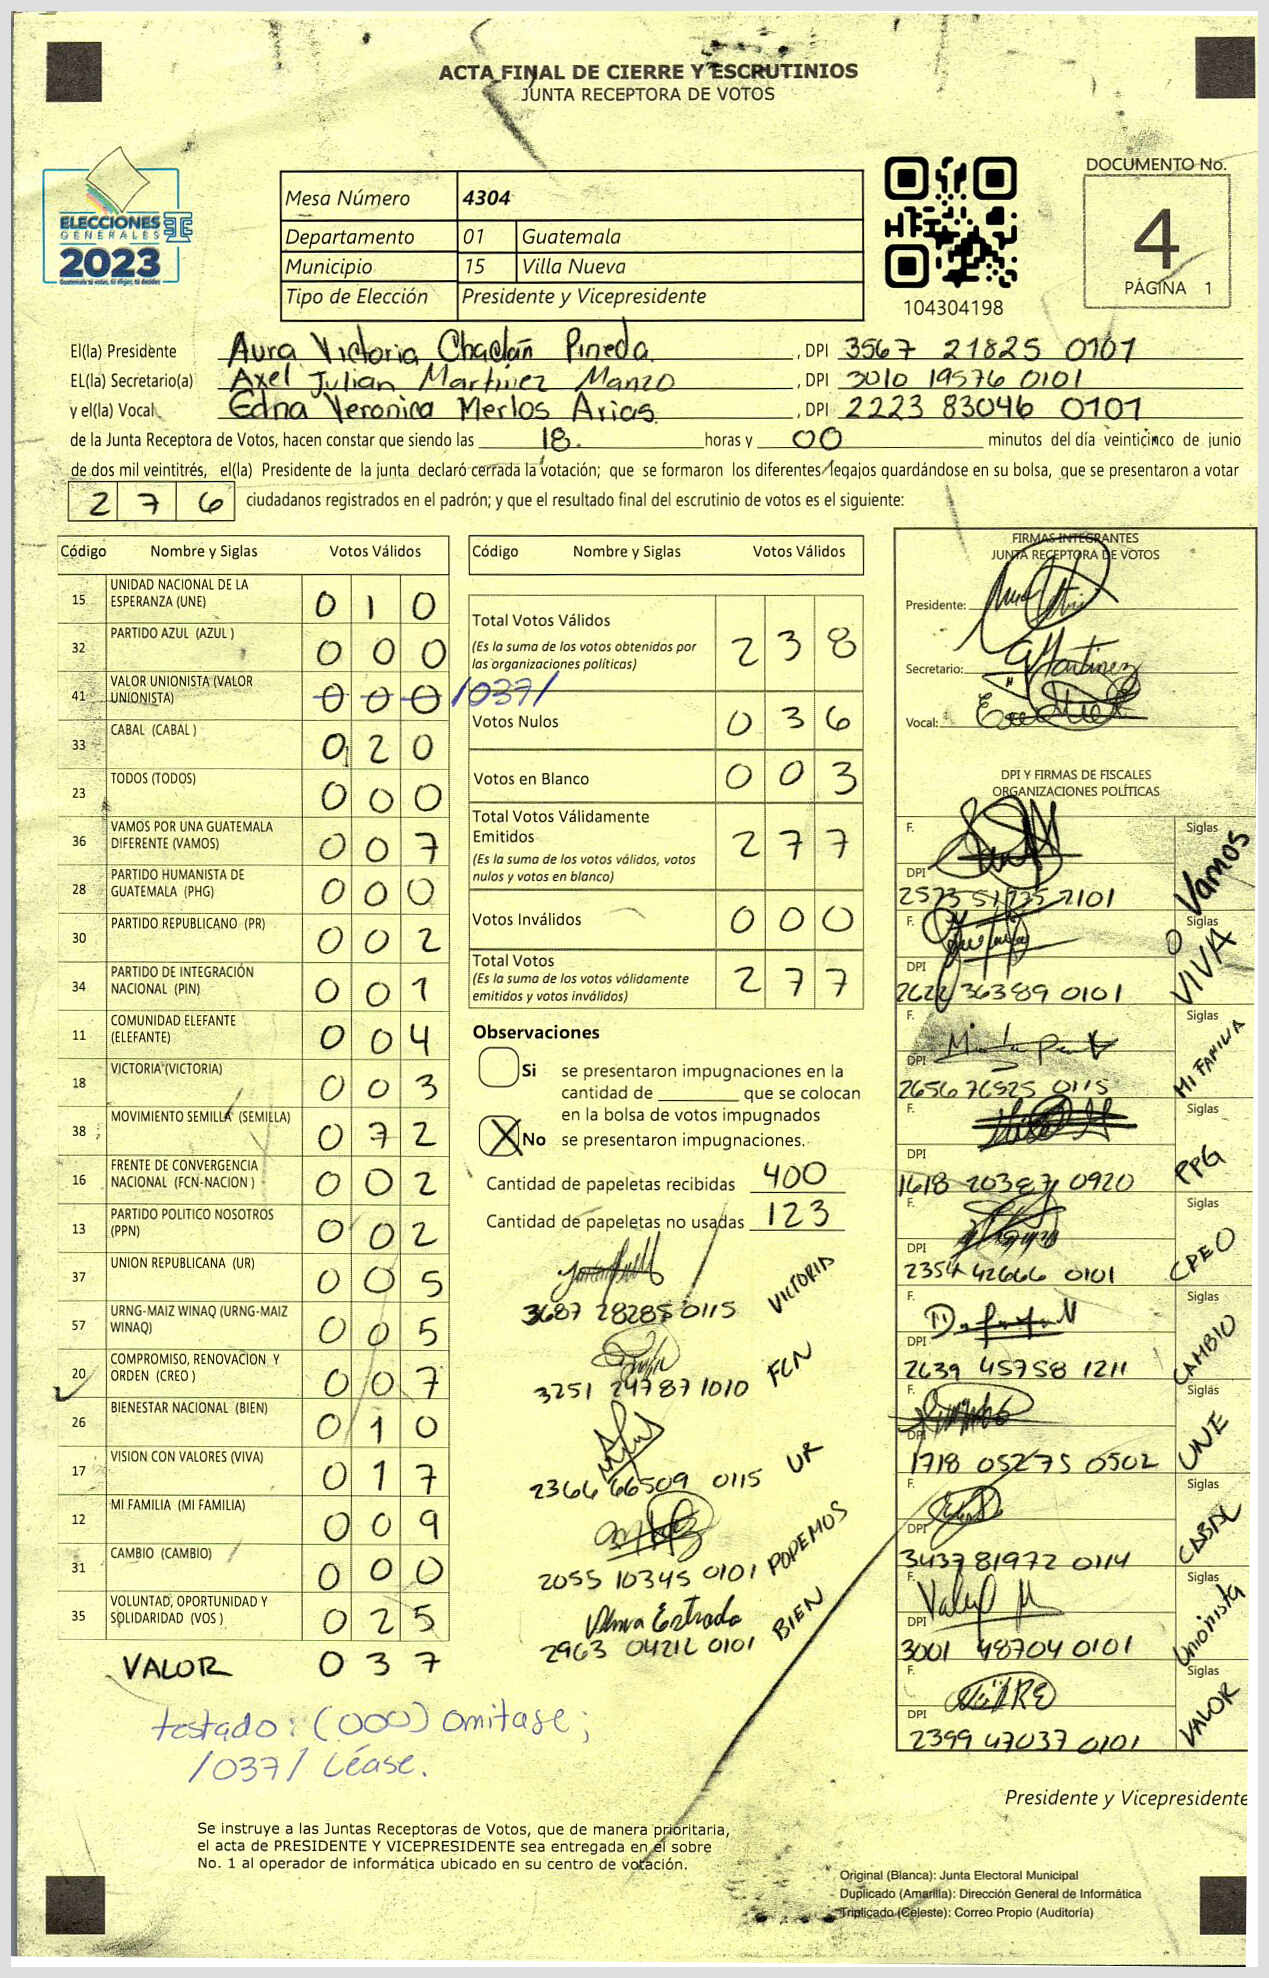 ACTA FINAL DE CIERRE Y ESCRUTINIOS
JUNTA RECEPTORA DE VOTOS
ELECCIONES
GENERALES
2023
Mesa Número 4304
Departamento 01 Guatemala
Municipio 15 Villa Nueva
Tipo de Elección Presidente y Vicepresidente
104304198
DOCUMENTO No.
4
PÁGINA 1
El(la) Presidente Aura Victoria Chaclán Pineda, DPI 3567 21825 0101
EL(la) Secretario(a) Axel Julian Martínez Manzo, DPI 3010 19576 0101
y el(la) Vocal Edna Veronica Merlos Arias, DPI 2223 83046 0101
de la Junta Receptora de Votos, hacen constar que siendo las 18. horas y 00 minutos del día veinticinco de junio
de dos mil veintitrés, el(la) Presidente de la junta declaró cerrada la votación; que se formaron los diferentes legajos guardándose en su bolsa, que se presentaron a votar
276 ciudadanos registrados en el padrón; y que el resultado final del escrutinio de votos es el siguiente:
Código Nombre y Siglas Votos Válidos
15 UNIDAD NACIONAL DE LA ESPERANZA (UNE) 010
32 PARTIDO AZUL (AZUL) 000
41 VALOR UNIONISTA (VALOR UNIONISTA) 000 /037/
33 CABAL (CABAL) 020
23 TODOS (TODOS) 000
36 VAMOS POR UNA GUATEMALA DIFERENTE (VAMOS) 007
28 PARTIDO HUMANISTA DE GUATEMALA (PHG) 000
30 PARTIDO REPUBLICANO (PR) 002
34 PARTIDO DE INTEGRACIÓN NACIONAL (PIN) 001
11 COMUNIDAD ELEFANTE (ELEFANTE) 004
18 VICTORIA (VICTORIA) 003
38 MOVIMIENTO SEMILLA (SEMILLA) 072
16 FRENTE DE CONVERGENCIA NACIONAL (FCN-NACION) 002
13 PARTIDO POLITICO NOSOTROS (PPN) 002
37 UNION REPUBLICANA (UR) 005
57 URNG-MAIZ WINAQ (URNG-MAIZ WINAQ) 005
20 COMPROMISO, RENOVACION Y ORDEN (CREO) 007
26 BIENESTAR NACIONAL (BIEN) 010
17 VISION CON VALORES (VIVA) 017
12 MI FAMILIA (MI FAMILIA) 009
31 CAMBIO (CAMBIO) 000
35 VOLUNTAD, OPORTUNIDAD Y SOLIDARIDAD (VOS) 025
VALOR 037
testado: (000) omitase;
/037/ Léase.
Código Nombre y Siglas Votos Válidos
Total Votos Válidos 238
(Es la suma de los votos obtenidos por las organizaciones políticas)
Votos Nulos 036
Votos en Blanco 003
Total Votos Válidamente Emitidos 277
(Es la suma de los votos válidos, votos nulos y votos en blanco)
Votos Inválidos 000
Total Votos 277
(Es la suma de los votos válidamente emitidos y votos inválidos)
Observaciones
Si se presentaron impugnaciones en la
cantidad de ________ que se colocan
en la bolsa de votos impugnados
X No se presentaron impugnaciones.
Cantidad de papeletas recibidas 400
Cantidad de papeletas no usadas 123
3687 28285 0115 VICTORIA
3251 24787 1010 FCN
2366 66509 0115 UR
2055 10345 0101 PODEMOS
Estrada
2963 04212 0101 BIEN
FIRMAS INTEGRANTES
JUNTA RECEPTORA DE VOTOS
Presidente:
Secretario: Martinez
Vocal:
DPI Y FIRMAS DE FISCALES
ORGANIZACIONES POLÍTICAS
F. Siglas
DPI Vamos
2101
F. Siglas
DPI VIVA
2622 36389 0101
F. Siglas
DPI MI FAMILIA
2656 76525 0115
F. Siglas
DPI PPG
1618 20387 0920
F. Siglas
DPI
2354 42666 0101
F. Siglas
DPI CAMBIO
2639 45758 1211
F. Siglas
DPI UNE
1718 05275 0502
F. Siglas
DPI CABAL
3437 81972 0114
F. Siglas
DPI Unionista
3001 48704 0101
F. Siglas
DPI VALOR
2399 47037 0101
Presidente y Vicepresidente
Se instruye a las Juntas Receptoras de Votos, que de manera prioritaria,
el acta de PRESIDENTE Y VICEPRESIDENTE sea entregada en el sobre
No. 1 al operador de informática ubicado en su centro de votación.
Original (Blanca): Junta Electoral Municipal
Duplicado (Amarilla): Dirección General de Informática
Triplicado (Celeste): Correo Propio (Auditoría)